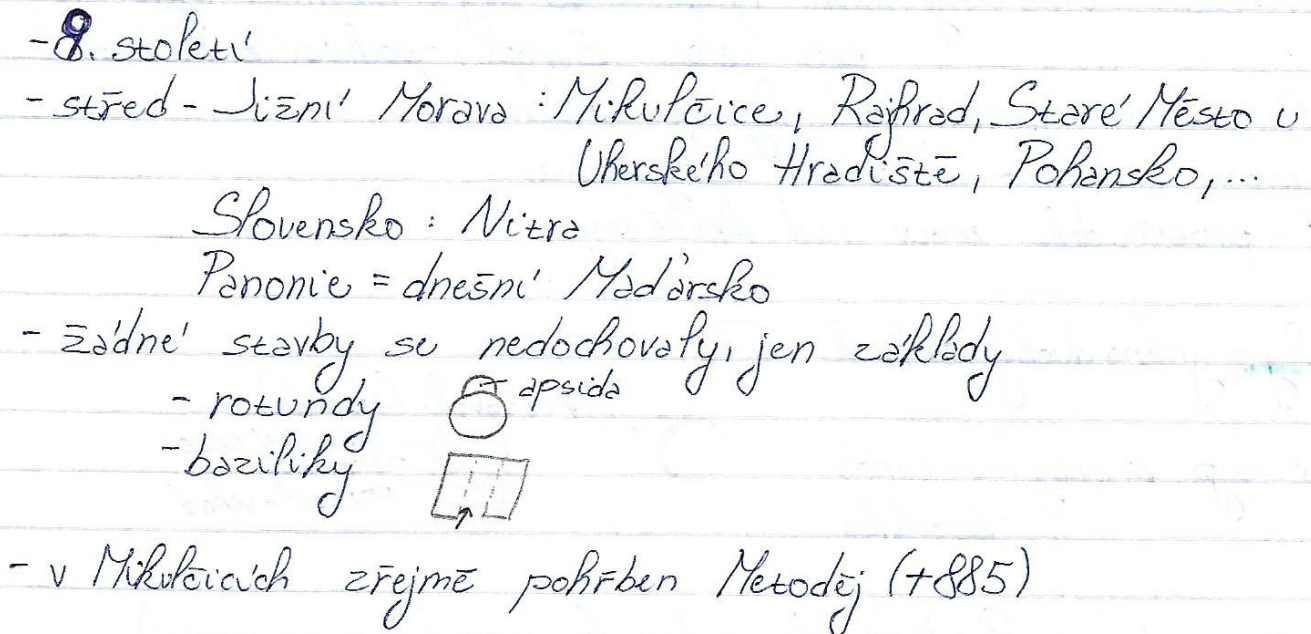 -9. století
- střed - Jižní Morava : Mikulčice, Rajhrad, Staré Město u
Uherského Hradiště, Pohansko,...
Slovensko : Nitra
Panonie = dnešní Maďarsko
- žádné stavby se nedochovaly, jen základy
- rotundy apsida
- baziliky
- v Mikulčicích zřejmě pohřben Metoděj (+885)